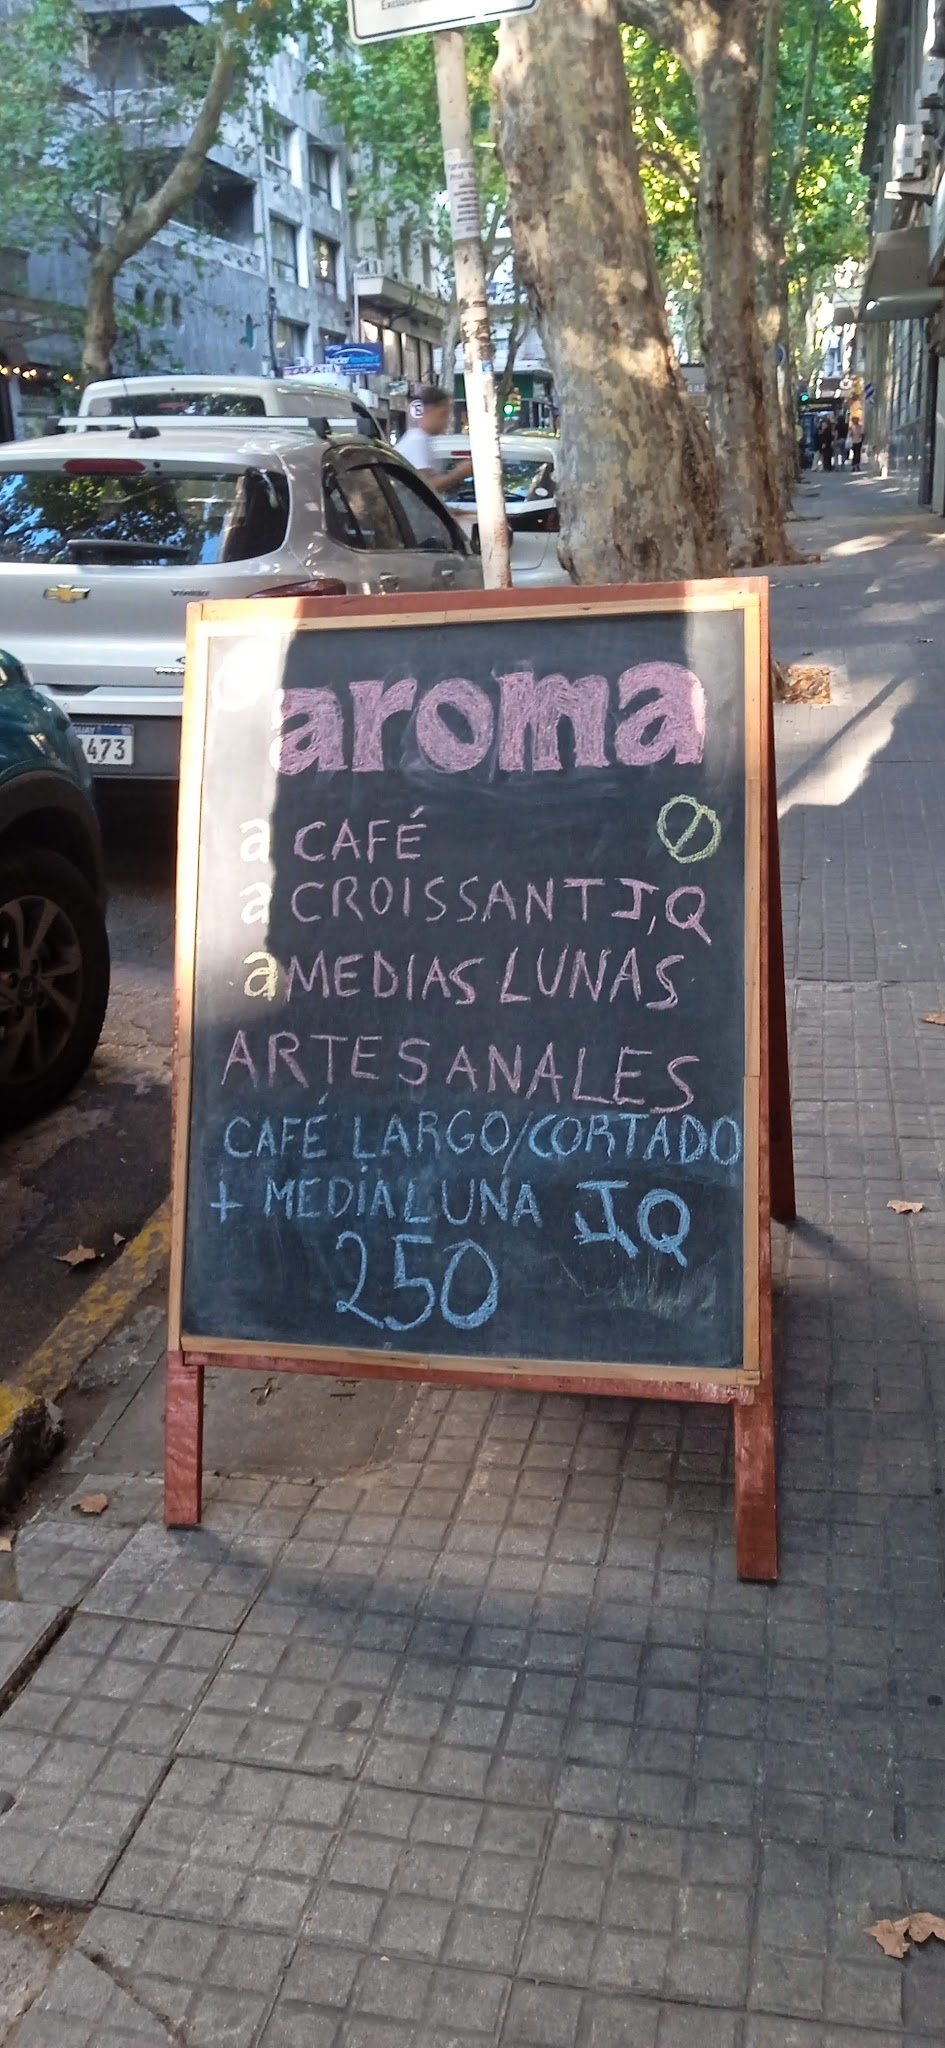 aroma
a CAFÉ
a CROISSANT J,Q
a MEDIAS LUNAS
ARTESANALES
CAFÉ LARGO/CORTADO
+ MEDIALUNA J,Q
250
473